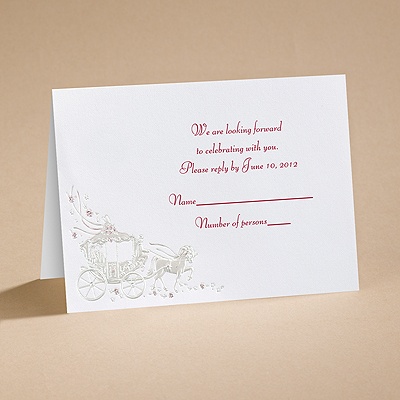 We are looking forward
to celebrating with you.
Please reply by June 10, 2012
Name
Number of persons